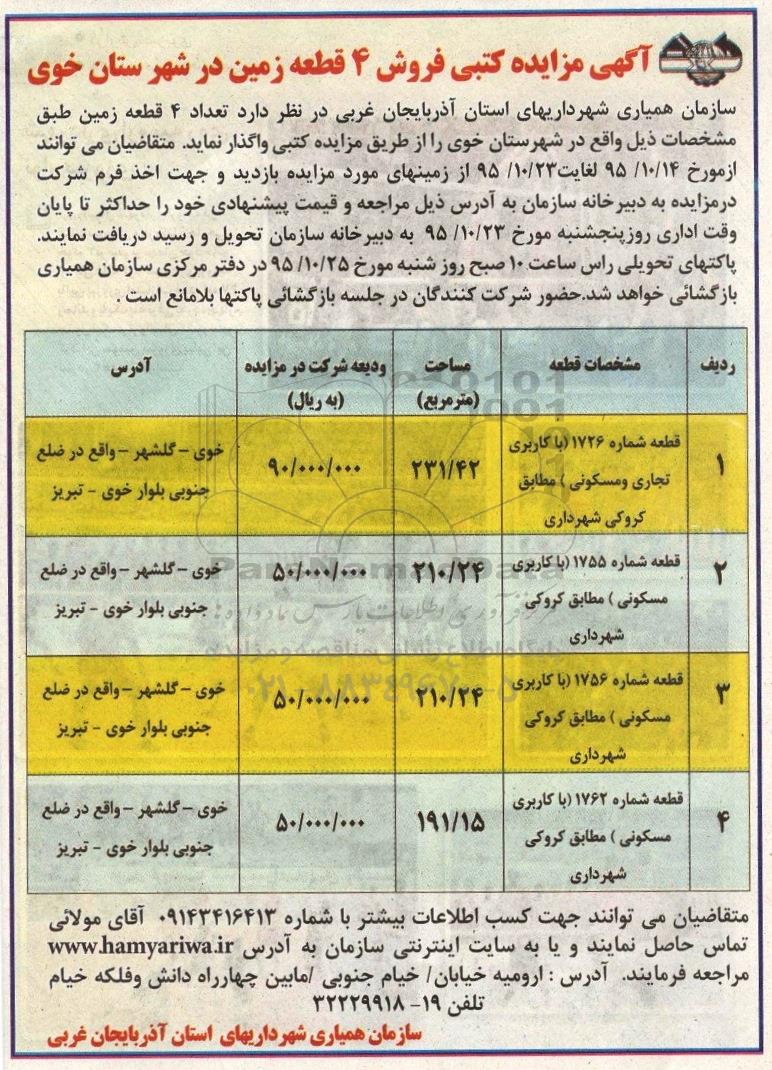 آگهی مزایده کتبی فروش ۴ قطعه زمین در شهر ستان خوی
سازمان همیاری شهرداریهای استان آذربایجان غربی در نظر دارد تعداد ۴ قطعه زمین طبق
مشخصات ذیل واقع در شهرستان خوی را از طریق مزایده کتبی واگذار نماید. متقاضیان می توانند
ازمورخ ۹۵/۱۰/۱۴ لغایت ۹۵/۱۰/۲۳ از زمینهای مورد مزایده بازدید و جهت اخذ فرم شرکت
درمزایده به دبیرخانه سازمان به آدرس ذیل مراجعه و قیمت پیشنهادی خود را حداکثر تا پایان
وقت اداری روزپنجشنبه مورخ ۹۵/۱۰/۲۳ به دبیرخانه سازمان تحویل و رسید دریافت نمایند.
پاکتهای تحویلی راس ساعت ۱۰ صبح روز شنبه مورخ ۹۵/۱۰/۲۵ در دفتر مرکزی سازمان همیاری
بازگشائی خواهد شد.حضور شرکت کنندگان در جلسه بازگشائی پاکتها بلامانع است .
ردیف مشخصات قطعه مساحت (مترمربع) ودیعه شرکت در مزایده (به ریال) آدرس
۱ قطعه شماره ۱۷۲۶ (با کاربری ۲۳۱/۴۲ ۹۰/۰۰۰/۰۰۰ خوی - گلشهر - واقع در ضلع
تجاری ومسکونی ) مطابق جنوبی بلوار خوی - تبریز
کروکی شهرداری
۲ قطعه شماره ۱۷۵۵ (با کاربری ۲۱۰/۲۴ ۵۰/۰۰۰/۰۰۰ خوی - گلشهر - واقع در ضلع
مسکونی ) مطابق کروکی جنوبی بلوار خوی - تبریز
شهرداری
۳ قطعه شماره ۱۷۵۶ (با کاربری ۲۱۰/۲۴ ۵۰/۰۰۰/۰۰۰ خوی - گلشهر - واقع در ضلع
مسکونی ) مطابق کروکی جنوبی بلوار خوی - تبریز
شهرداری
۴ قطعه شماره ۱۷۶۲ (با کاربری ۱۹۱/۱۵ ۵۰/۰۰۰/۰۰۰ خوی - گلشهر - واقع در ضلع
مسکونی ) مطابق کروکی جنوبی بلوار خوی - تبریز
شهرداری
متقاضیان می توانند جهت کسب اطلاعات بیشتر با شماره ۰۹۱۴۳۴۱۶۴۱۳ آقای مولائی
تماس حاصل نمایند و یا به سایت اینترنتی سازمان به آدرس www.hamyariwa.ir
مراجعه فرمایند. آدرس : ارومیه خیابان/ خیام جنوبی /مابین چهارراه دانش وفلکه خیام
تلفن ۱۹- ۳۲۲۲۹۹۱۸
سازمان همیاری شهرداریهای استان آذربایجان غربی